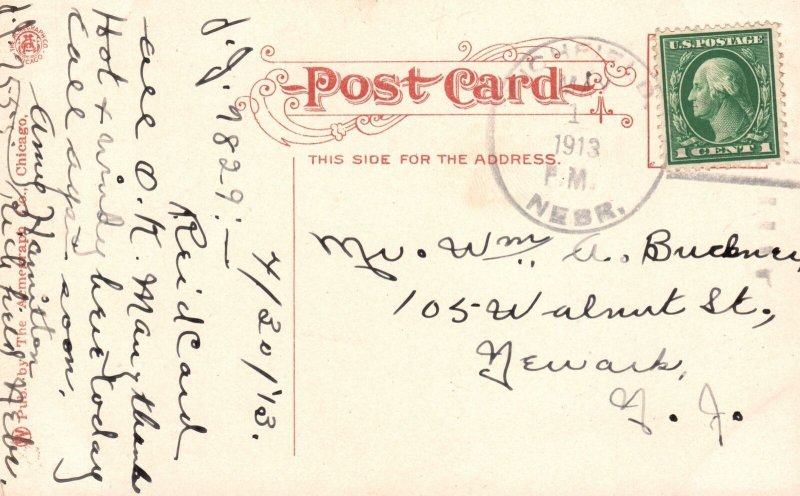 Post Card
THIS SIDE FOR THE ADDRESS.
U.S. POSTAGE
1 CENT 1
1
1913
P.M.
NEBR.
Mr. Wm. A. Buckney
105 Walnut St.,
Newark,
N. J.
4/30/'13.
J.J. 9829:—
Reid Card
all O.K. Many thanks
Hot + windy here today
Call again soon,
Hamilton
Nebr.
Pub. by The Acmegraph Co., Chicago.